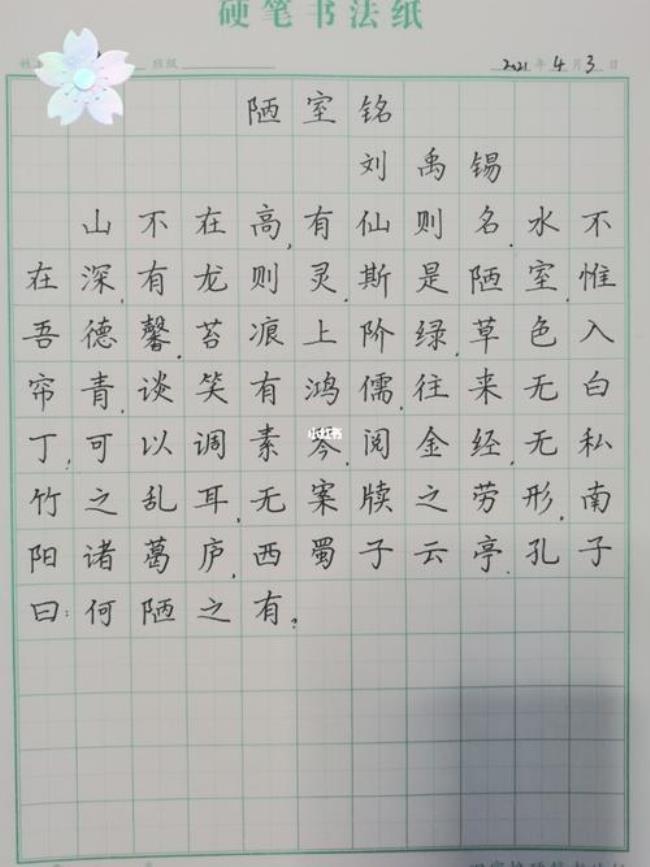 硬笔书法纸
班级
2021年4月3日
陋室铭
刘禹锡
山不在高,有仙则名.水不
在深,有龙则灵.斯是陋室,惟
吾德馨.苔痕上阶绿,草色入
帘青.谈笑有鸿儒,往来无白
丁,可以调素琴.阅金经,无私
竹之乱耳,无案牍之劳形,南
阳诸葛庐,西蜀子云亭.孔子
曰:何陋之有?
小红书